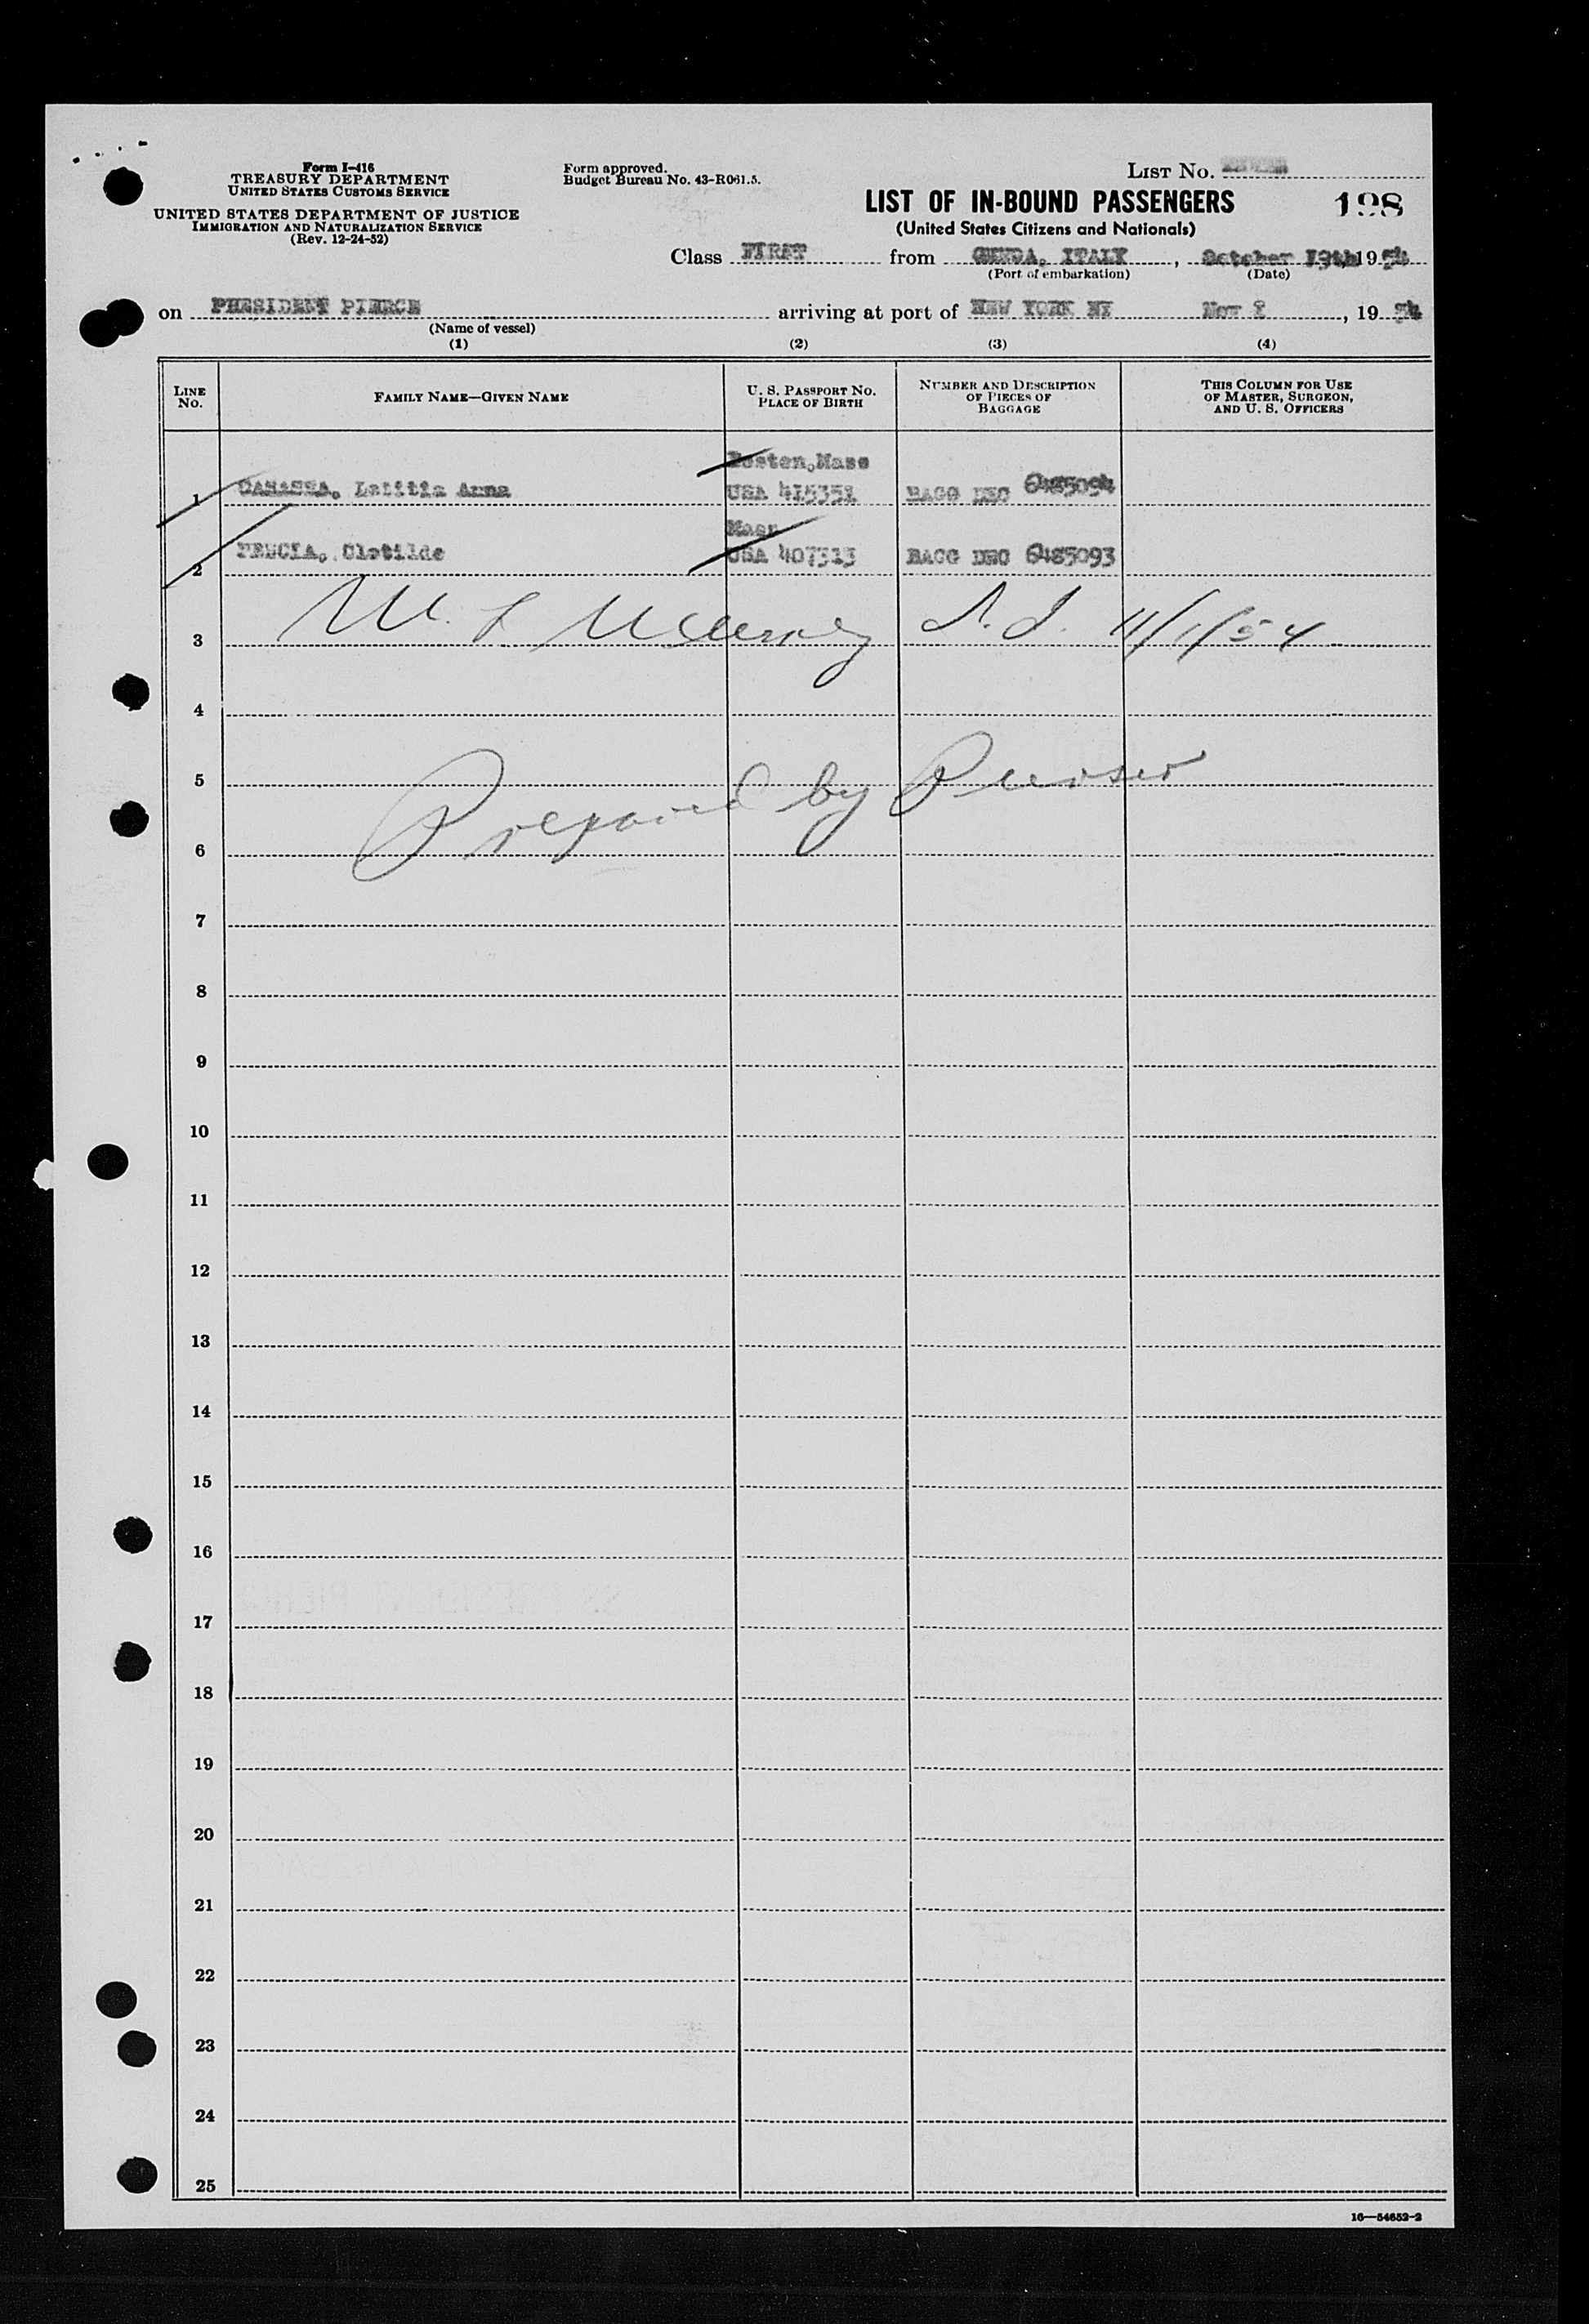 Form I-416
TREASURY DEPARTMENT
UNITED STATES CUSTOMS SERVICE
UNITED STATES DEPARTMENT OF JUSTICE
IMMIGRATION AND NATURALIZATION SERVICE
(Rev. 12-24-52)
Form approved.
Budget Bureau No. 43-R061.5.
LIST No.
LIST OF IN-BOUND PASSENGERS
198
(United States Citizens and Nationals)
Class FIRST from GENOA, ITALY, October 19th, 1954
(Port of embarkation) (Date)
on PRESIDENT PIERCE arriving at port of NEW YORK NY Nov 1, 1954
(Name of vessel)
(1) (2) (3) (4)
LINE NO. FAMILY NAME—GIVEN NAME U. S. PASSPORT NO. PLACE OF BIRTH NUMBER AND DESCRIPTION OF PIECES OF BAGGAGE THIS COLUMN FOR USE OF MASTER, SURGEON, AND U. S. OFFICERS
Boston, Mass
1 Letitia Anna USA 415351 BAGG DEC 6485094
Mass
2 Clotilde USA 407313 BAGG DEC 6485093
3 M. L. 11/1/54
4
5 Prepared by Purser
6
7
8
9
10
11
12
13
14
15
16
17
18
19
20
21
22
23
24
25
16—54652-2